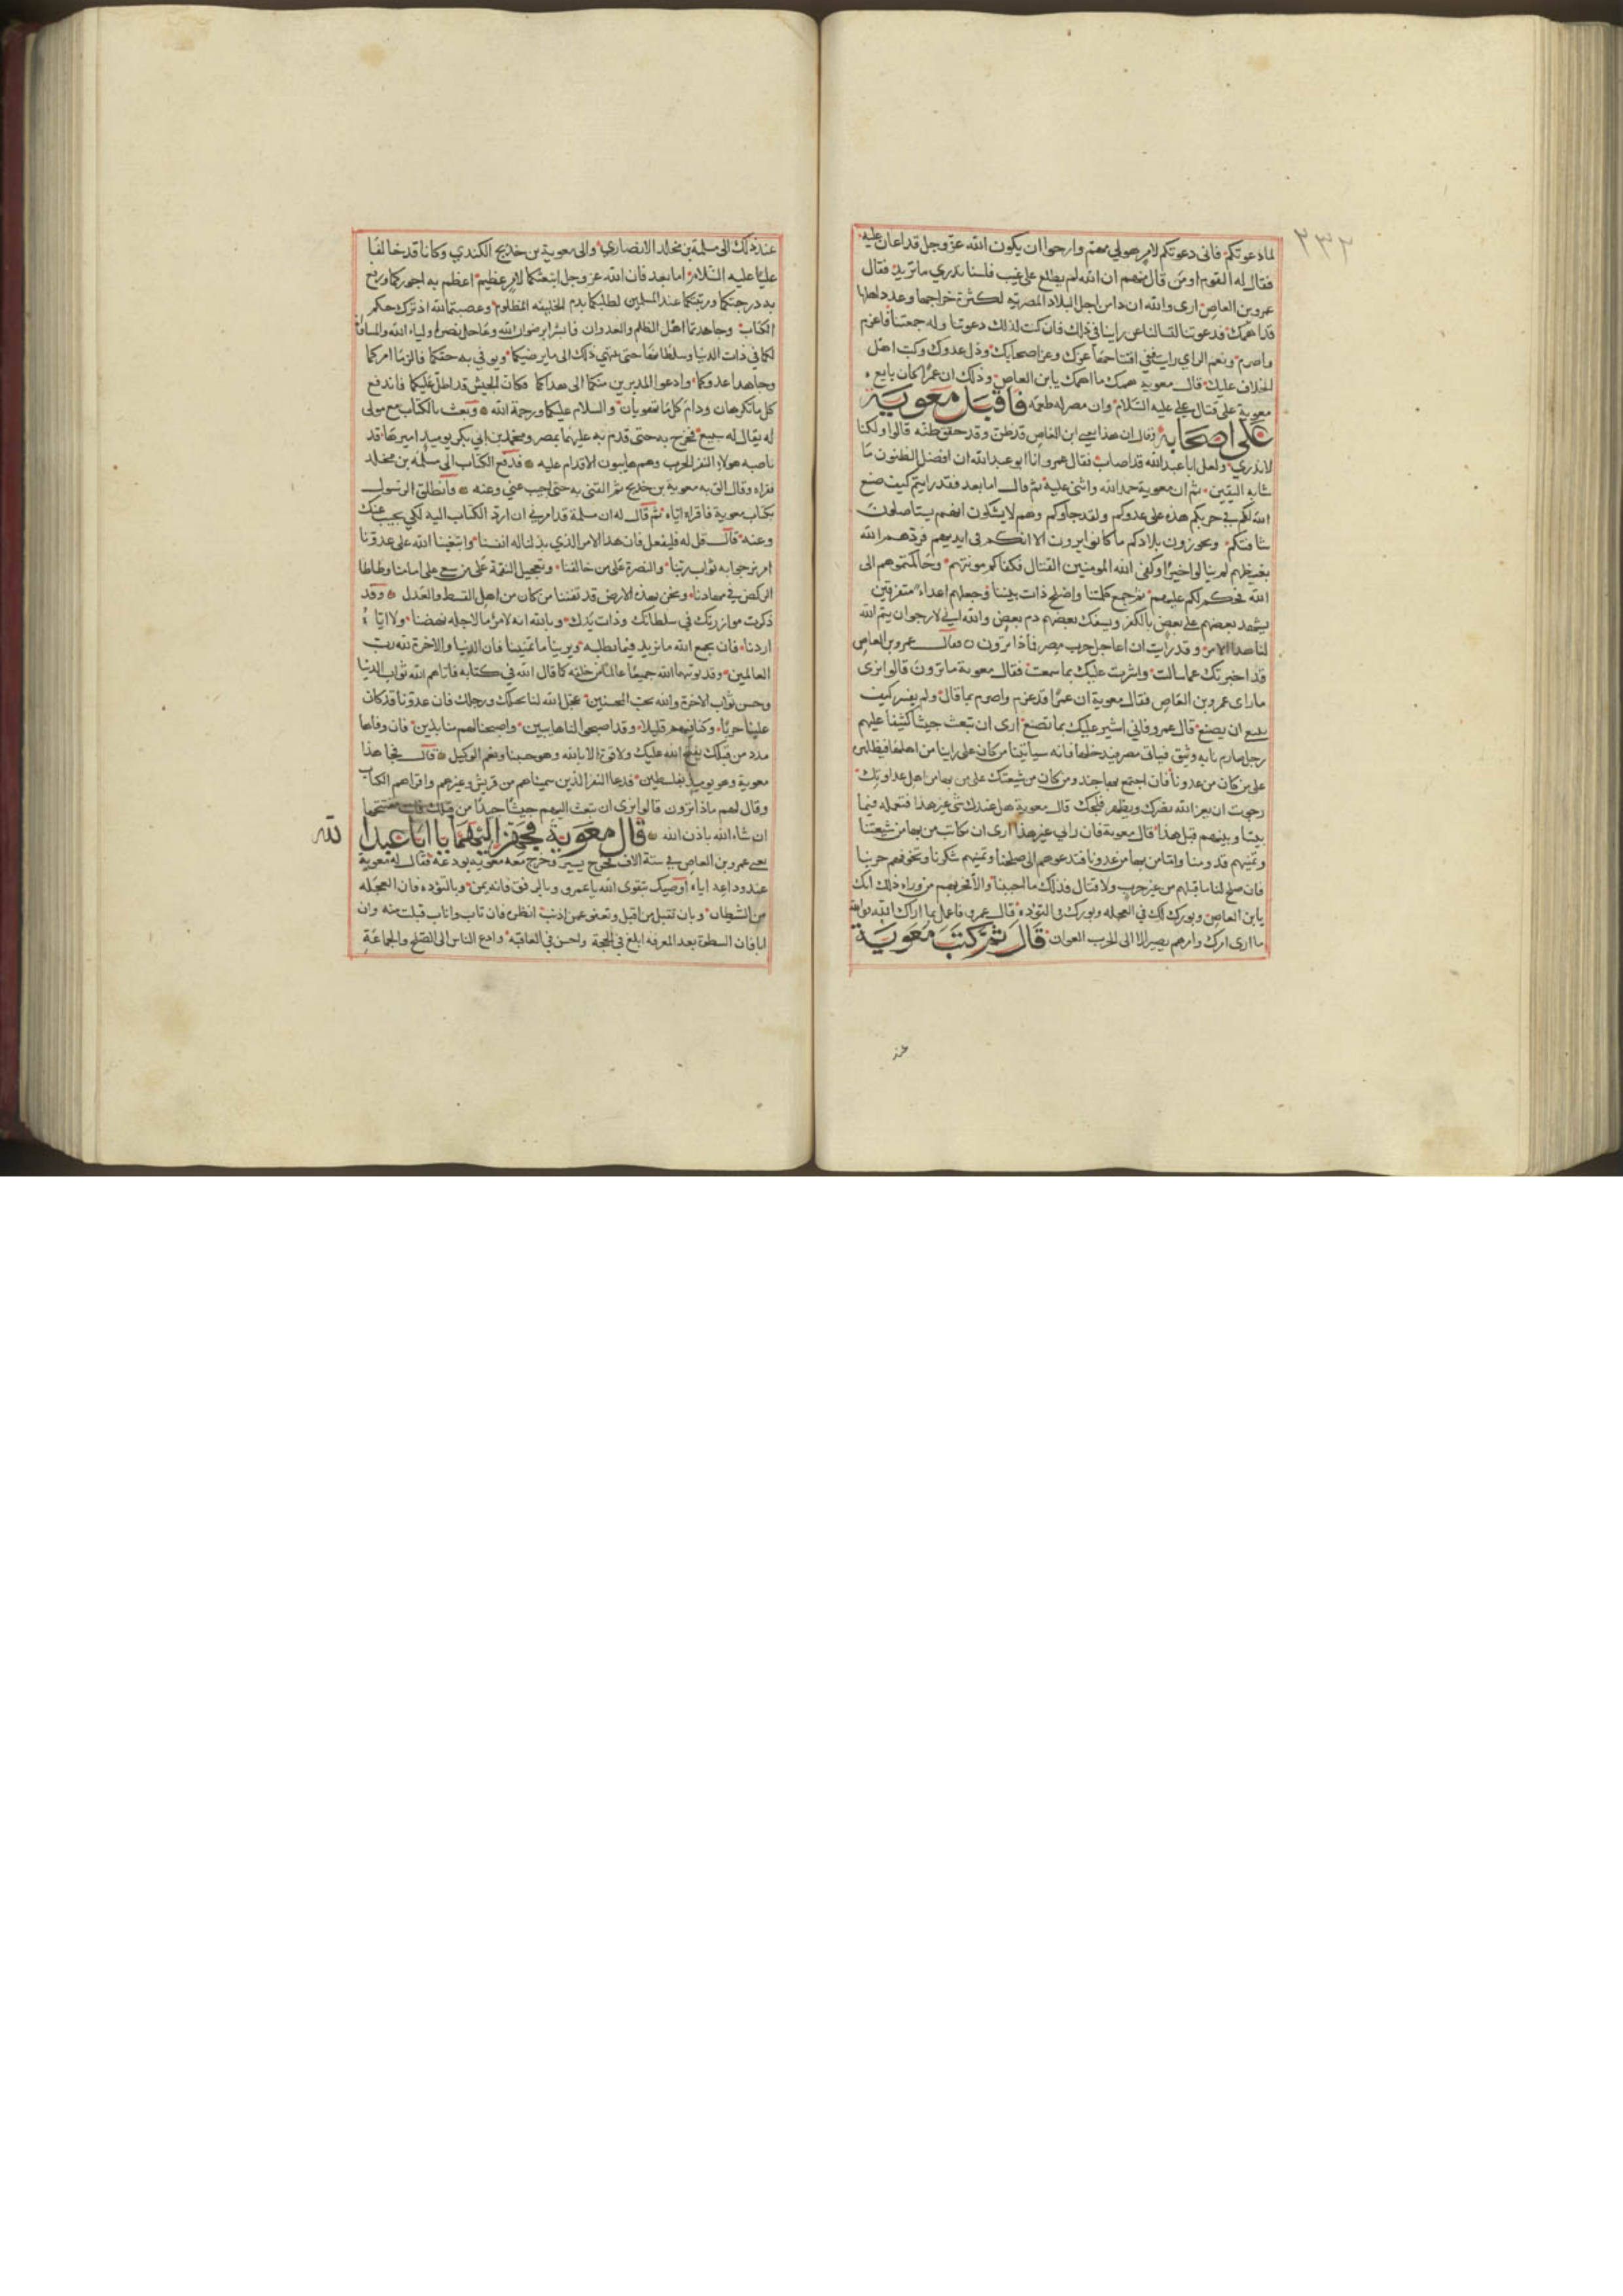 ٢٣٢
لماذا دعوتكم فاني دعوتكم لامر هو لي مهم وارجوا ان يكون الله عز وجل قد اعان عليه
فقال له القوم او من قال منهم ان الله لم يطلع على غيب فلسنا ندري ما تريد فقال
عمرو بن العاص ارى والله ان داس اجل البلاد المصرية لكثرة خراجها وعدد اهلها
قد اهمك فدعوتنا لتسالنا عن راينا في ذلك فان كنت لذلك دعوتنا وله جمعتنا فاعزم
واصرم ونعم الراي رايت ففي افتتاحها عزك وعز اصحابك وذل عدوك وكبت اهل
الخلاف عليك قال معوية همك ما اهمك يابن العاص وذلك ان عمرا كان بايع
معوية على قتال علي عليه السلام وان مصر له طعمه فاقبل معوية
على اصحابه وقال ان هذا يعني ابن العاص قد ظن وقد حقق ظنه قالوا ولكنا
لا ندري ولعل ابا عبد الله قد اصاب فقال عمرو وانا ابو عبد الله ان افضل الظنون ما
شابه اليقين ثم ان معوية حمد الله واثنى عليه ثم قال اما بعد فقد رايتم كيف صنع
الله لكم في حربكم هذه على عدوكم ولقد جاوكم وهم لا يشكون انهم يستاصلون
شافتكم ويحوزون بلادكم ما كانوا يرون الا انكم في ايديهم فردهم الله
بغيظهم لم ينالوا خيرا وكفى الله المومنين القتال فكفاكم مونتهم وحاكمتموهم الى
الله فحكم لكم عليهم ثم جمع كلمتنا واصلح ذات بيننا وجعلهم اعداء متفرقين
يشهد بعضهم على بعض بالكفر ويسفك بعضهم دم بعض والله اني لارجو ان يتم الله
لنا هذا الامر وقد رايت ان اعاجل حرب مصر فماذا ترون فقال عمرو بن العاص
قد اخبرتك عما سالت واشرت عليك بما سمعت فقال معوية ما ترون قالوا نرى
ما راى عمرو بن العاص فقال معوية ان عمرا قد عزم واصرم بما قال ولم يفسر كيف
ينبغي ان يصنع قال عمرو فاني اشير عليك بما تصنع ارى ان تبعث جيشا كثيفا عليهم
رجل صارم تامنه وتثق فياتي مصر فيدخلها فانه سياتينا من كان على راينا من اهلها فيظاهر
على من كان من عدونا فان اجتمع بها جندك ومن كان من شيعتك على من بها من اهل عداوتك
رجوت ان يعز الله نصرك ويظهر فلجك قال معوية هل عندك شي غير هذا فنعمله فيما
بيننا وبينهم قبل هذا قال معوية فان رايي غير هذا ارى ان نكاتب من بها من شيعتنا
ونمنيهم قدومنا واما من بها من عدونا فندعوهم الى صلحنا ونمنيهم شكرنا ونخوفهم حربنا
فان صلح لنا ما قبلهم من غير حرب ولا قتال فذلك ما احببنا والا فحربهم من وراء ذلك انك
يابن العاص وبورك لك في العجلة وبورك لي في التؤدة قال عمرو فاعمل بما اراك الله فوالله
ما ارى امرك وامرهم يصير الا الى الحرب العوان قال ثم كتب معوية
عند
عند ذلك الى مسلمة بن مخلد الانصاري والى معوية بن خديج الكندي وكانا قد خالفا
عليا عليه السلام اما بعد فان الله عز وجل ابتعثكما لامر عظيم اعظم به اجوركما ورفع
به درجتكما ومرتبتكما عند المسلمين لطلبكما بدم الخليفه المظلوم وغضبتما لله اذ ترك حكم
الكتاب وجاهدتما اهل الظلم والعدوان فابشرا برضوان الله وعاجل نصرة اولياء الله والمساواة
لكما في ذات الدنيا وسلطاننا حتى ينتهي ذلك الى ما يرضيكما ويوفي به حقكما فالزما امركما
وجاهدا عدوكما وادعوا المدبرين منكما الى هداكما فكان الجيش قد اطل عليكما فاندفع
كل ما تكرهان ودام كل ما تهويان والسلام عليكما ورحمة الله وبعث بالكتاب مع مولى
له يقال له سبيع فخرج به حتى قدم به عليهما بمصر ومحمد بن ابي بكر يوميذ اميرها قد
ناصبه هولاء النفر الحرب وهم هايبون الاقدام عليه فدفع الكتاب الى مسلمة بن مخلد
فقراه وقال الق به معوية بن خديج ثم القني به حتى اجيب عني وعنه فانطلق الرسول
بكتاب معوية فاقراه اياه ثم قال له ان مسلمة قد امرني ان ارد الكتاب اليه لكي يجيب عنك
وعنه قال قل له فليفعل فان هذا الامر الذي بذلنا له انفسنا وابتغينا الله على عدونا
امر نرجوا به ثواب ربنا والنصرة على من خالفنا وتعجيل النقمة على من سعى على امامنا وطاطا
الركض في جهادنا ونحن بهذه الارض قد نفينا من كان من اهل القسط والعدل وقد
ذكرت موازرتك في سلطانك وذات يدك وبالله انه لا من مال لاجله نهضنا ولا اياه
اردنا فان يجمع الله ما نريد فيما نطلبه ويرينا ما تمنينا فان الدنيا والاخرة لله رب
العالمين وقد يوتيهما الله جميعا عالما من خلقه كما قال الله في كتابه فاتاهم الله ثواب الدنيا
وحسن ثواب الاخرة والله يحب المحسنين عجل الله لنا بخيلك ورجلك فان عدونا قد كان
علينا حربا وكنا فيهم قليلا وقد اصبحوا لنا هايبين واصبحنا لهم منابذين فان وفانا
مدد من قبلك يفتح الله عليك ولا قوة الا بالله وهو حسبنا ونعم الوكيل قال فجا هذا
معوية وهو يوميذ بفلسطين فدعا النفر الذين سميناهم من قريش وغيرهم واقراهم الكتاب
وقال لهم ماذا ترون قالوا نرى ان تبعث اليهم جيشا جندا من قبلك فانك مفتتحها
ان شاء الله باذن الله قال معوية فتجهز اليهما يا ابا عبد الله
يعني عمرو بن العاص في ستة الاف فخرج يسير وخرج معه معوية يودعه فقال له معوية
عند وداعه اياه اوصيك بتقوى الله يا عمرو وبالرفق فانه يمن وبالتؤده فان العجله
من الشيطان وبان تقبل من اقبل وتعفى عمن ادبر انظره فان تاب واناب قبلت منه وان
ابا فان السطوة بعد المعرفه ابلغ في الحجة واحسن في العاقبة وادع الناس الى الصلح والجماعة